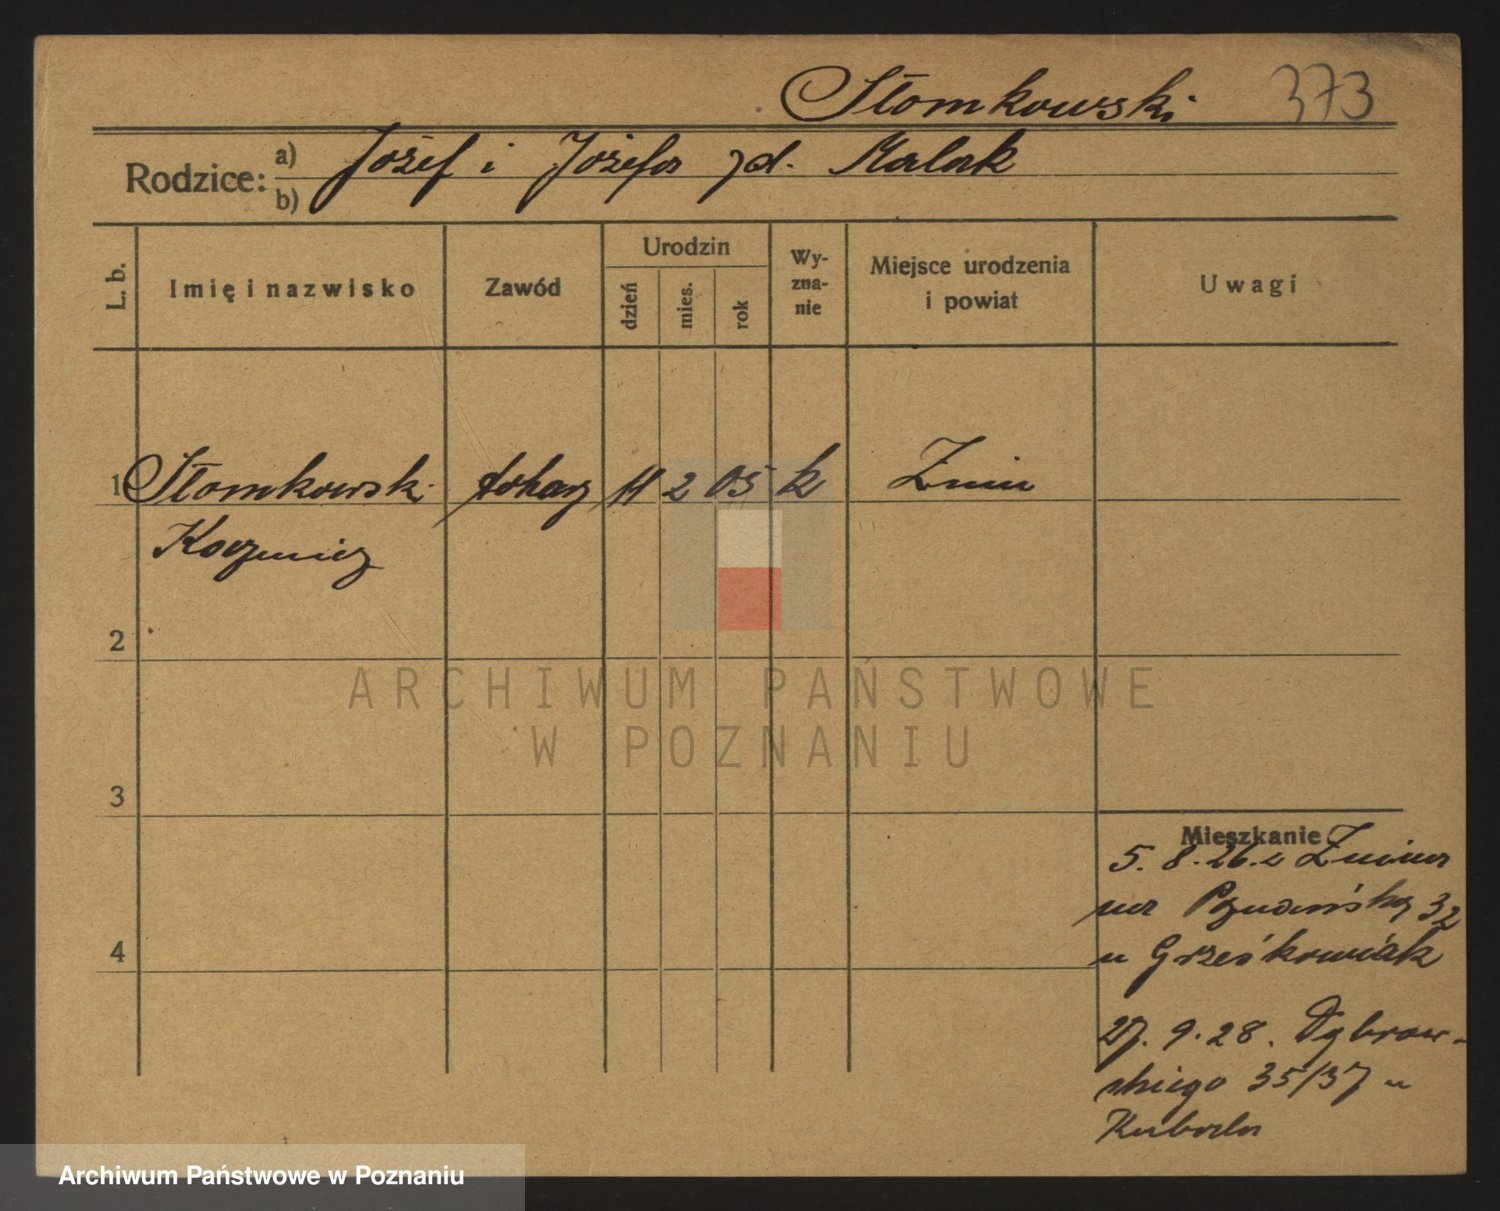 Słomkowski 373
Rodzice: a) Józef i Józefa zd. Malak
b)
L. b. Imię i nazwisko Zawód Urodzin dzień mies. rok Wy-zna-nie Miejsce urodzenia i powiat Uwagi
1 Słomkowski tokarz 11 2 05 k Żnin
Kazmierz
2
3
4
Mieszkanie
5. 8. 26. z Żnina
na Poznańską 32
u Grześkowiak
27. 9. 28. Dąbrow-
skiego 35/37 u
Kubala
ARCHIWUM PAŃSTWOWE
W POZNANIU
Archiwum Państwowe w Poznaniu